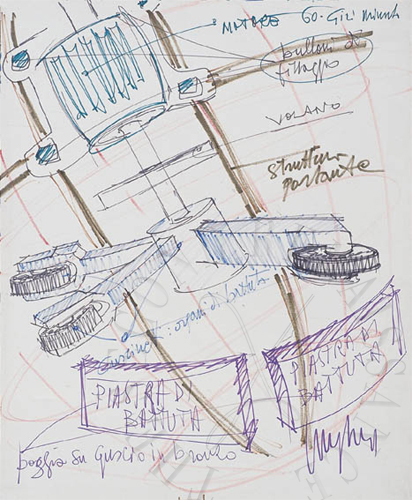 MOTORE 60 Giri minuti
bulloni di
fissaggio
VOLANO
struttura
portante
cuscinetti: organi di battuta
PIASTRA DI
BATTUTA
PIASTRA DI
BATTUTA
poggia su guscio in bronzo